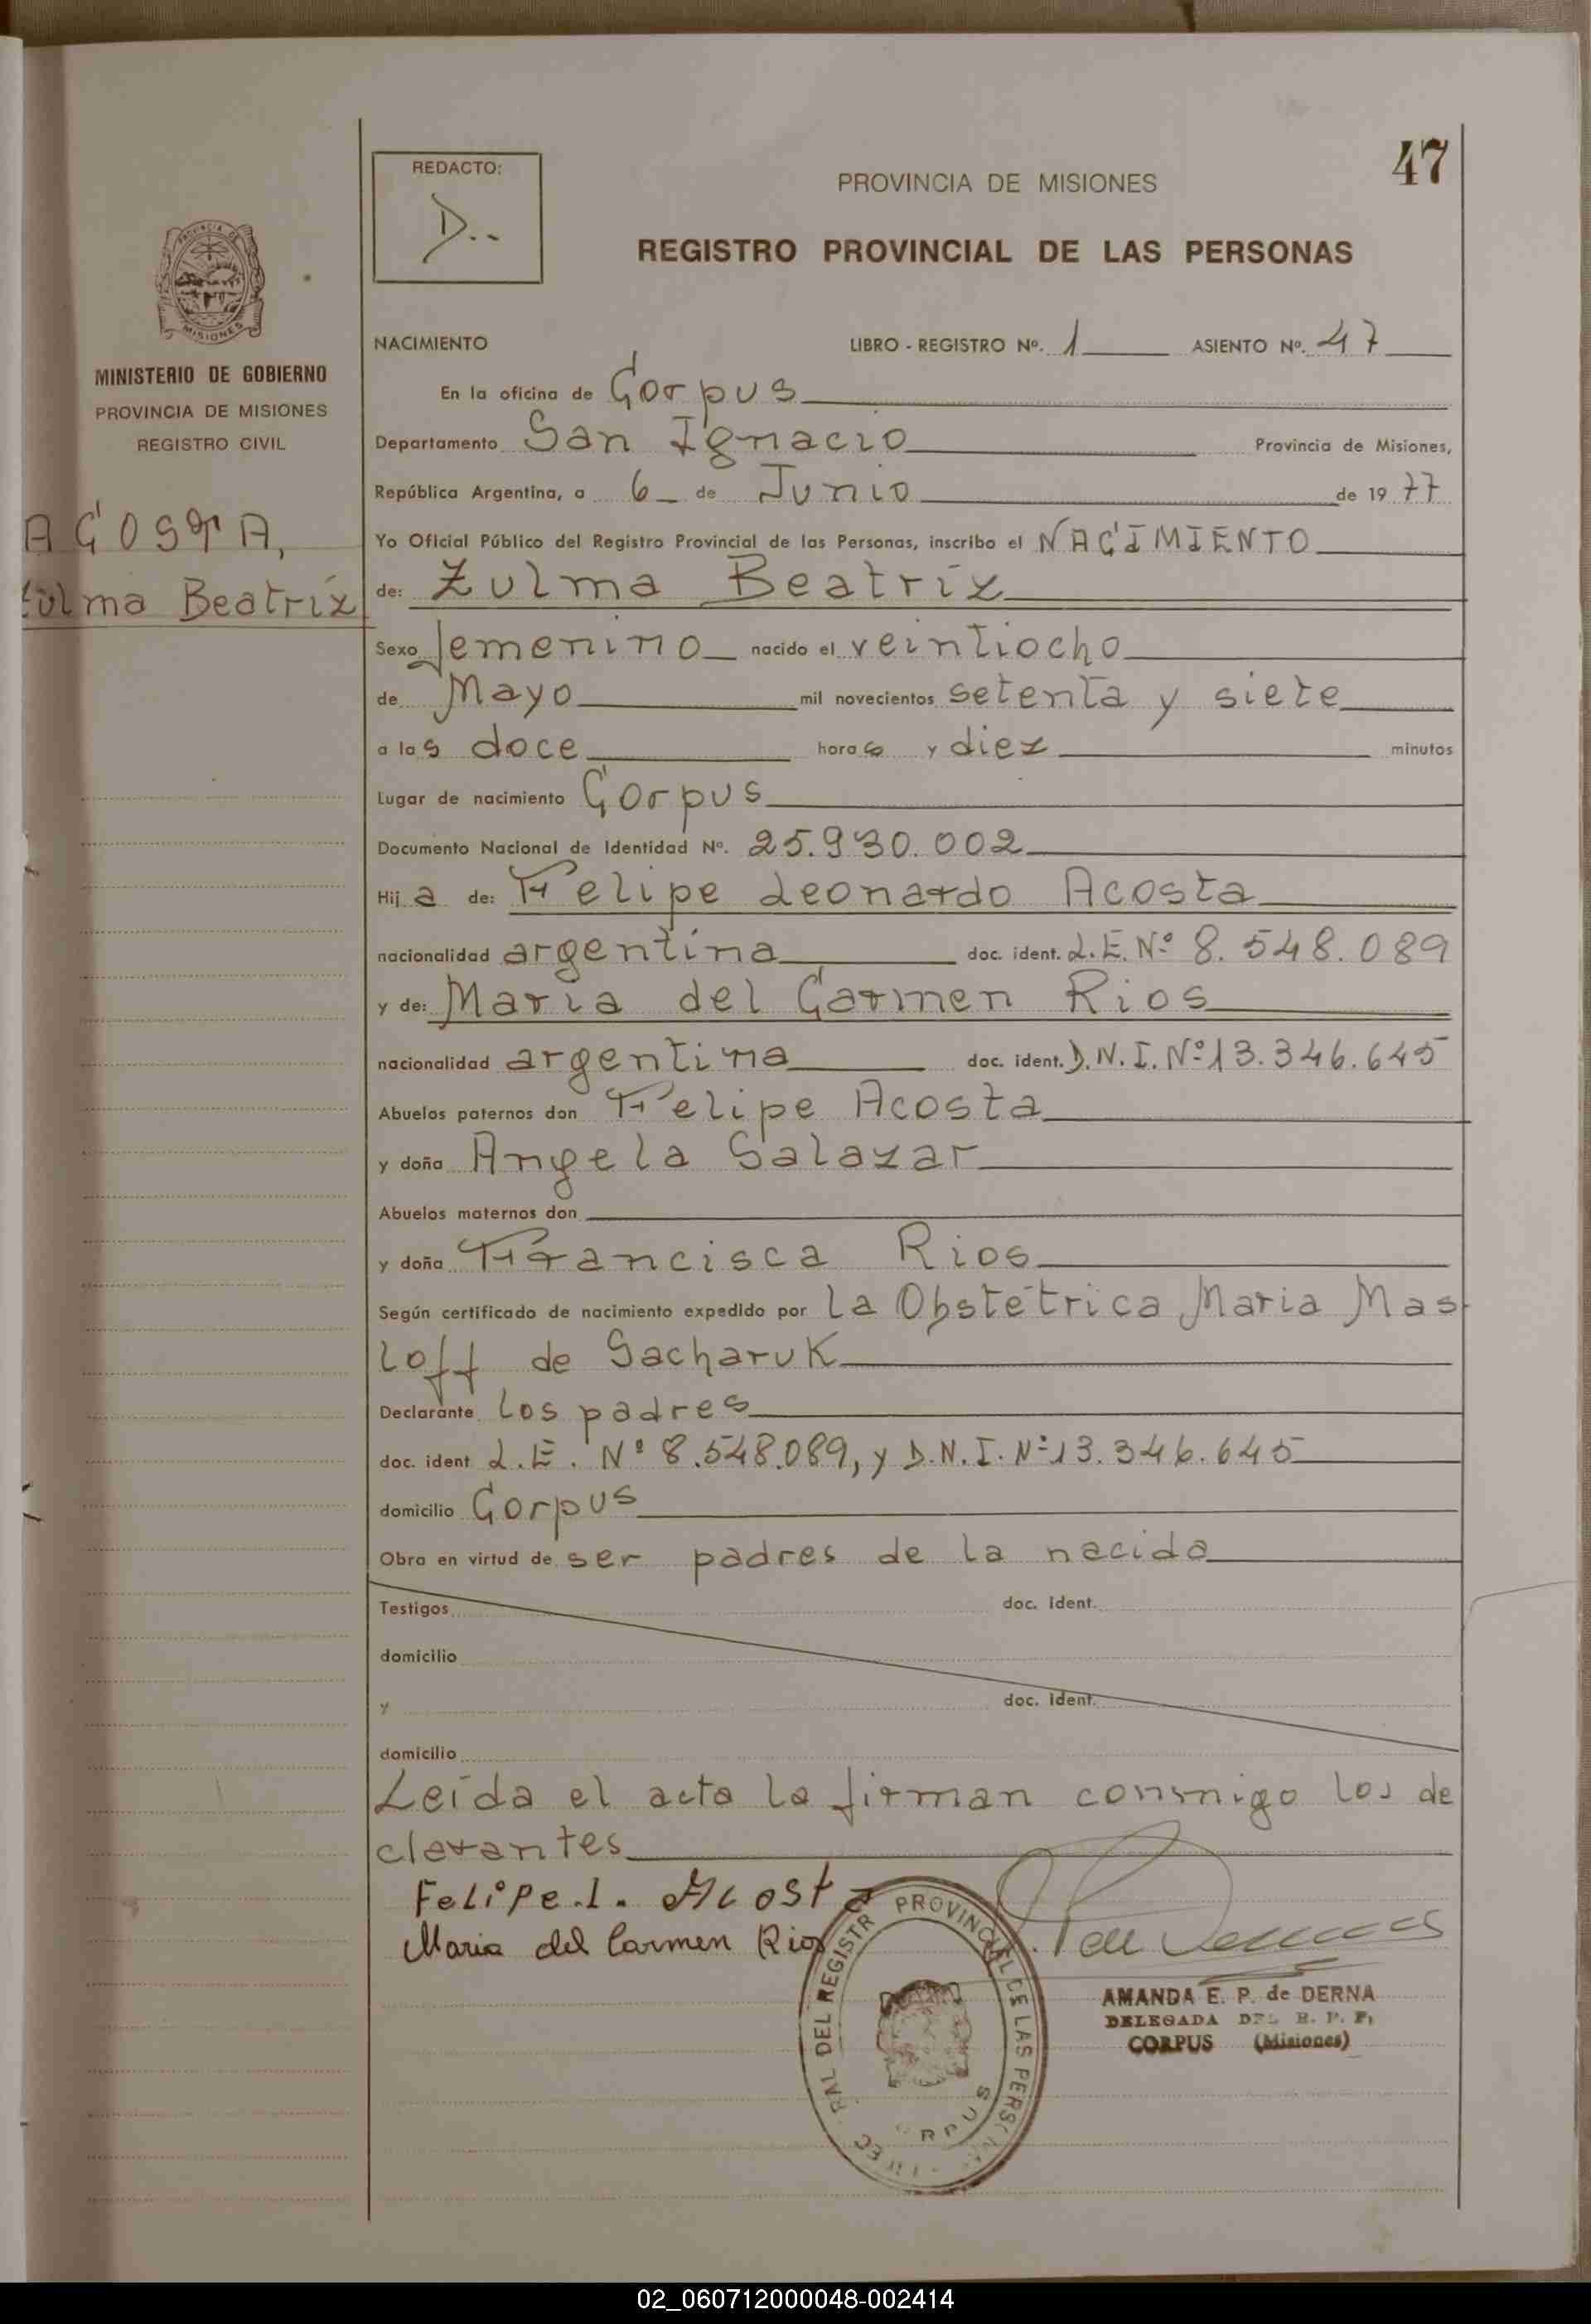 47
REDACTO:
D..
PROVINCIA DE MISIONES
REGISTRO PROVINCIAL DE LAS PERSONAS
MISIONES
MINISTERIO DE GOBIERNO
PROVINCIA DE MISIONES
REGISTRO CIVIL
AGOSTA,
Zulma Beatríz
NACIMIENTO LIBRO - REGISTRO Nº. 1 ASIENTO Nº. 47
En la oficina de Corpus
Departamento San Ignacio Provincia de Misiones,
República Argentina, a 6 de Junio de 1977
Yo Oficial Público del Registro Provincial de las Personas, inscribo el NACIMIENTO
de: Zulma Beatríz
Sexo femenino nacido el veintiocho
de Mayo mil novecientos setenta y siete
a las doce horas y diez minutos
Lugar de nacimiento Corpus
Documento Nacional de Identidad Nº. 25.930.002
Hija de: Felipe Leonardo Acosta
nacionalidad argentina doc. ident. L.E. Nº 8.548.089
y de: Maria del Carmen Rios
nacionalidad argentina doc. ident. D.N.I. Nº 13.346.645
Abuelos paternos don Felipe Acosta
y doña Angela Salazar
Abuelos maternos don
y doña Francisca Rios
Según certificado de nacimiento expedido por la Obstétrica Maria Mas
loff de Sacharuk
Declarante los padres
doc. ident L.E. Nº 8.548.089, y D.N.I. Nº 13.346.645
domicilio Corpus
Obra en virtud de ser padres de la nacida
Testigos doc. ident.
domicilio
y doc. ident.
domicilio
Leída el acta la firman conmigo los de
clarantes
Felipe.L. Acosta
Maria del Carmen Rios
AMANDA E. P. de DERNA
DELEGADA DEL R. P. P.
CORPUS (Misiones)
RAL DEL REGISTR PROVINCIAL DE LAS PERS
02_060712000048-002414